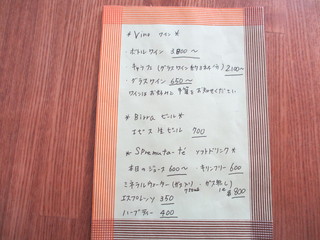 * Vino ワイン *
・ボトルワイン 3800〜
・キャラフェ(グラスワイン 2200〜
・グラスワイン 650〜
ワインはお好みと予算をお知らせください
* Birra ビール *
エビス 生ビール 700
* Spremuta・té ソフトドリンク *
本日のジュース 600〜 ・キリンフリー 600
ミネラルウォーター(ガス入り・ガス無し) 800
エスプレッソ 350
ハーブティー 400